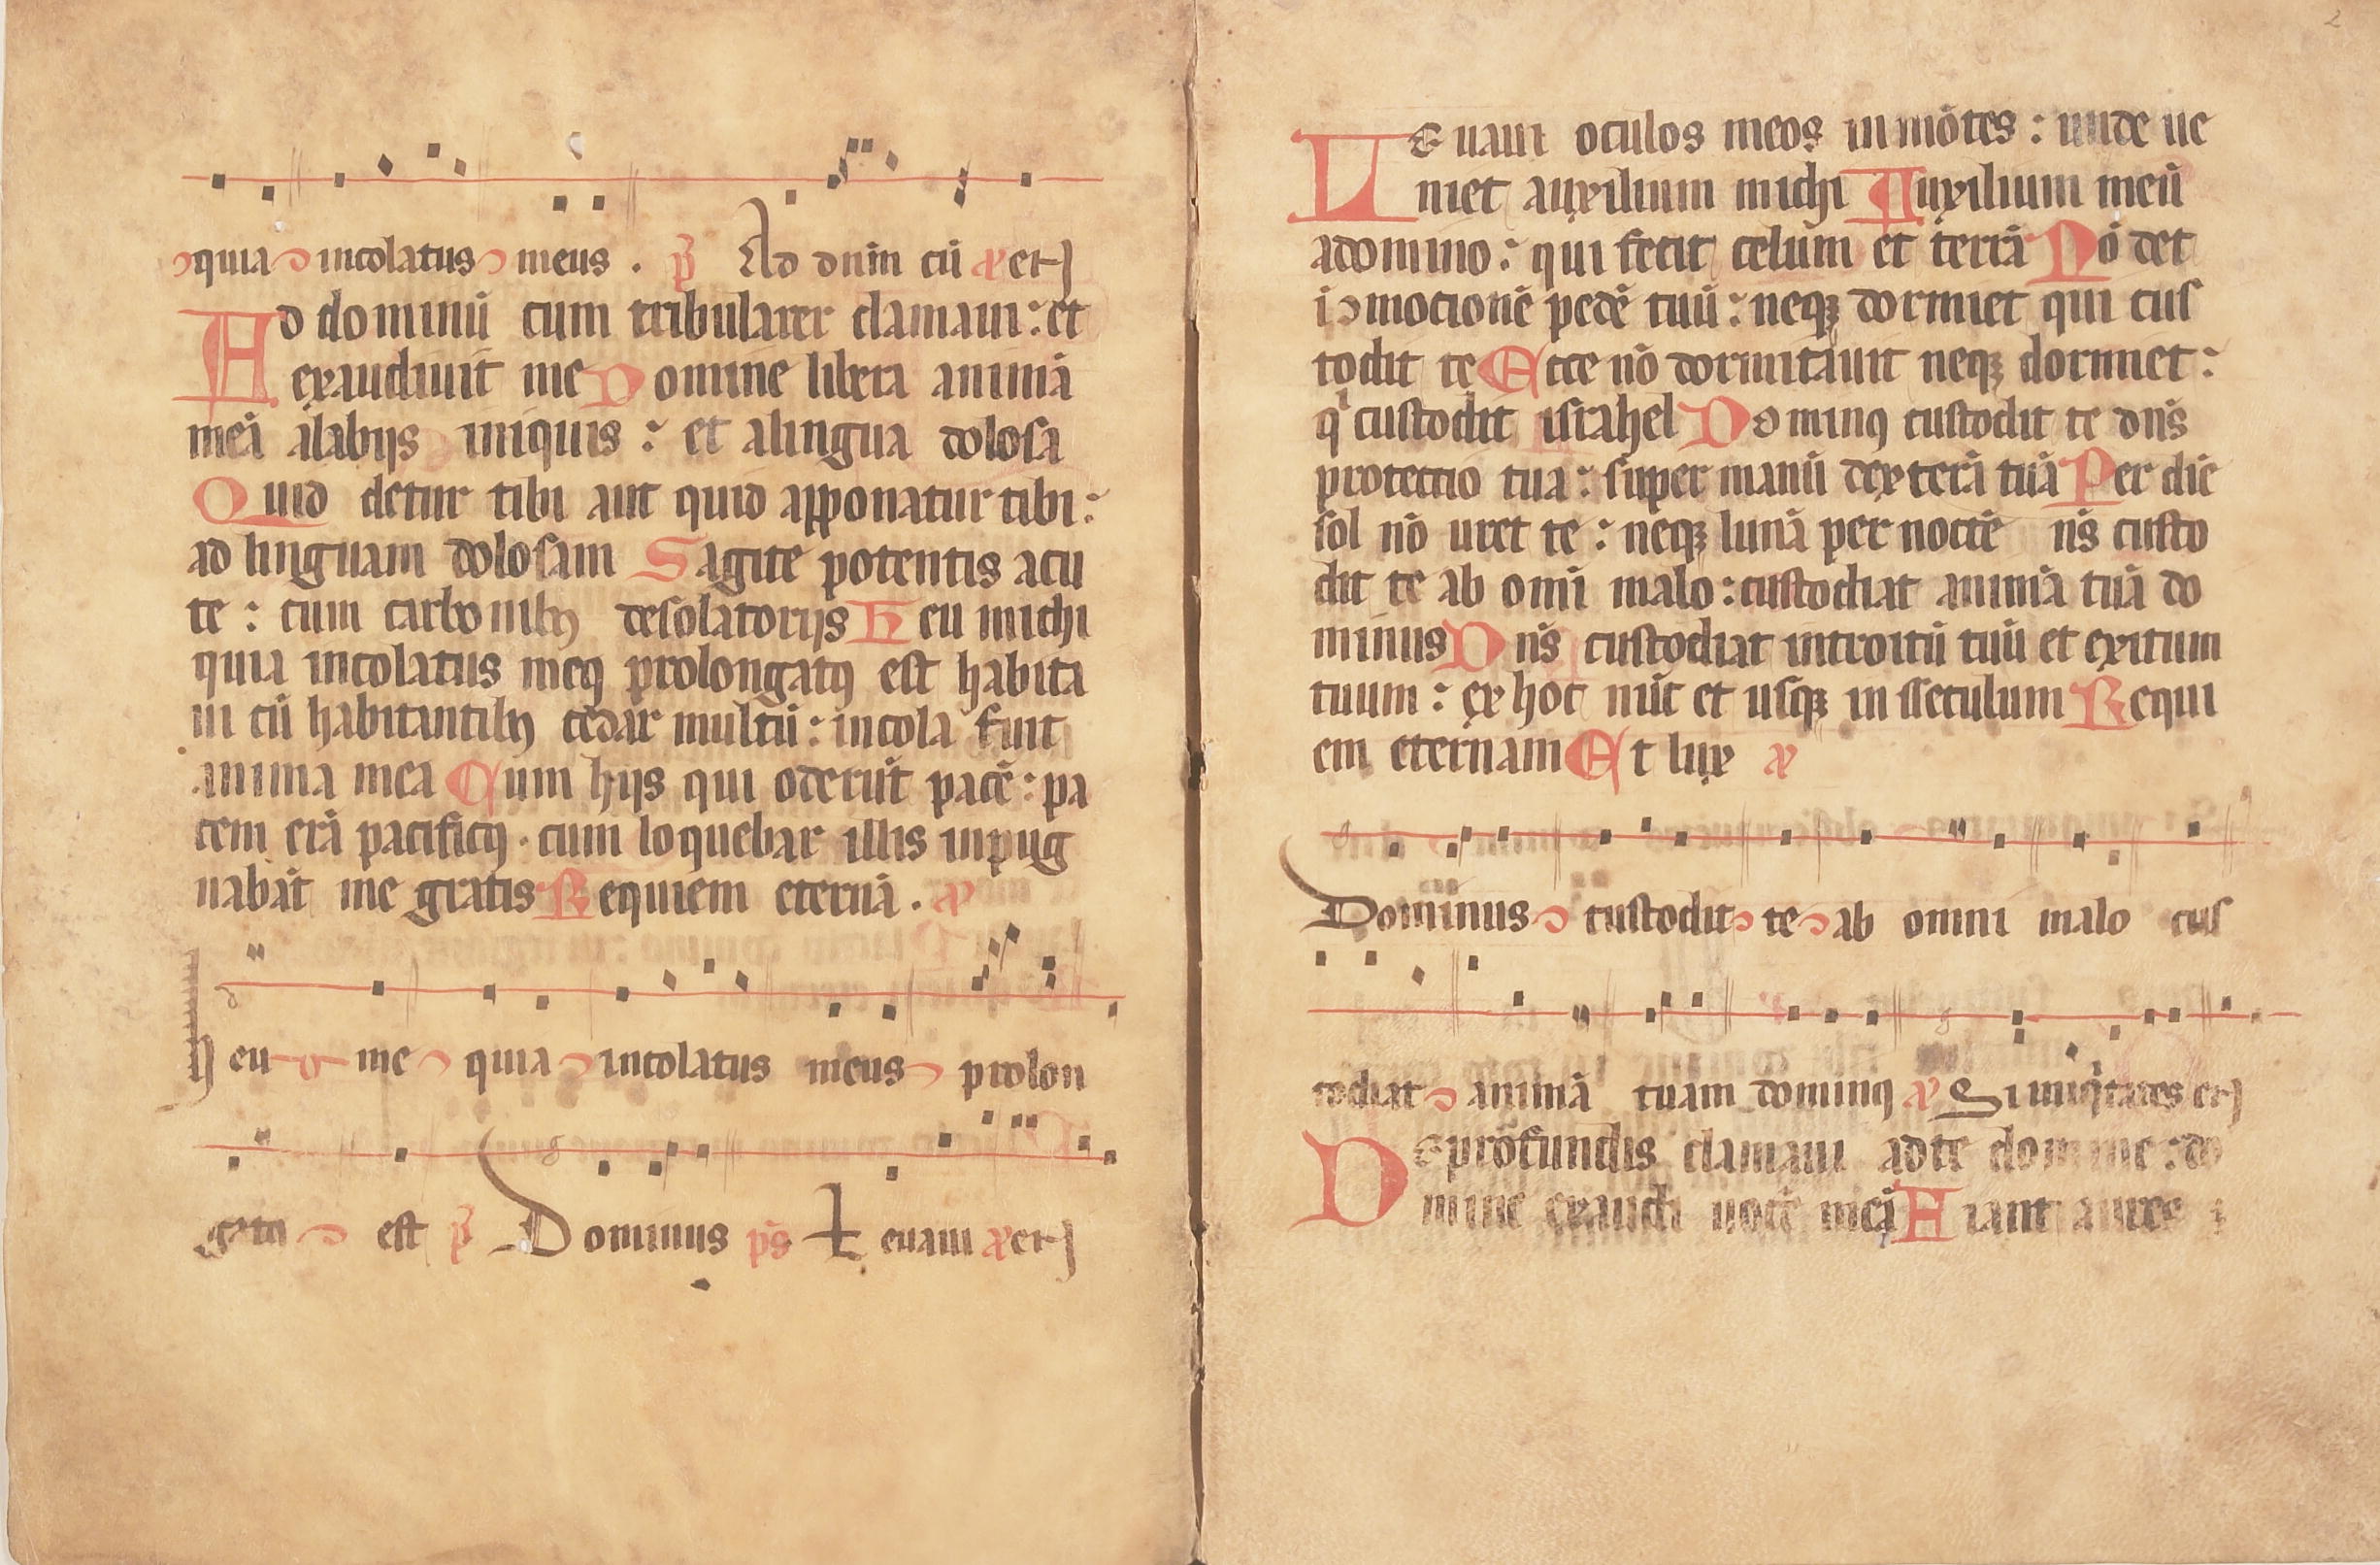 quia incolatus meus . p̄ Ad dnīm cū ⁊ etꝭ
Ad dominū cum tribularer clamaui : et
exaudiuit me Domine libera animā
meā alabijs iniquis : et alingua dolosa
Quid detur tibi aut quid apponatur tibi :
ad linguam dolosam Sagite potentis acu
te : cum carbonibꝰ desolatorijs Heu michi
quia incolatus meꝰ prolongatꝰ est habita
ui cū habitantibꝰ cedar multū : incola fuit
anima mea Cum hijs qui oderūt pacē : pa
cem erā pacificꝰ . cum loquebar illis inpug
nabāt me gratis Requiem eternā . ⁊
Heu me quia incolatus meus prolon
gatꝰ est p̄ Dominus ps̄ Leuaui ⁊ etꝭ
2
Leuaui oculos meos inmōtes : unde ue
niet auxilium michi Auxilium meū
adomino : qui fecit celum et terrā Nō det
ī cōmocionē pedē tuū : neqꝫ dormiet qui cus
todit te Ecce nō dormitauit neqꝫ dormiet :
qͥ custodit israhel Dominꝰ custodit te dn̄s
protectio tua : super manū dexterā tuā Per diē
sol nō uret te : neqꝫ lunā per noctē n̄s custo
dit te ab omī malo : custodiat animā tuā do
minus Dn̄s custodiat introitū tuū et exitum
tuum : ex hoc nūc et usqꝫ in seculum Requi
em eternam Et lux ⁊
Dominus custodit te ab omni malo cus
todiat animā tuam dominꝰ ⁊ Si iniqͥtates etꝭ
De profundis clamaui adte domine : do
mine exaudi uocē meā Fiant aures